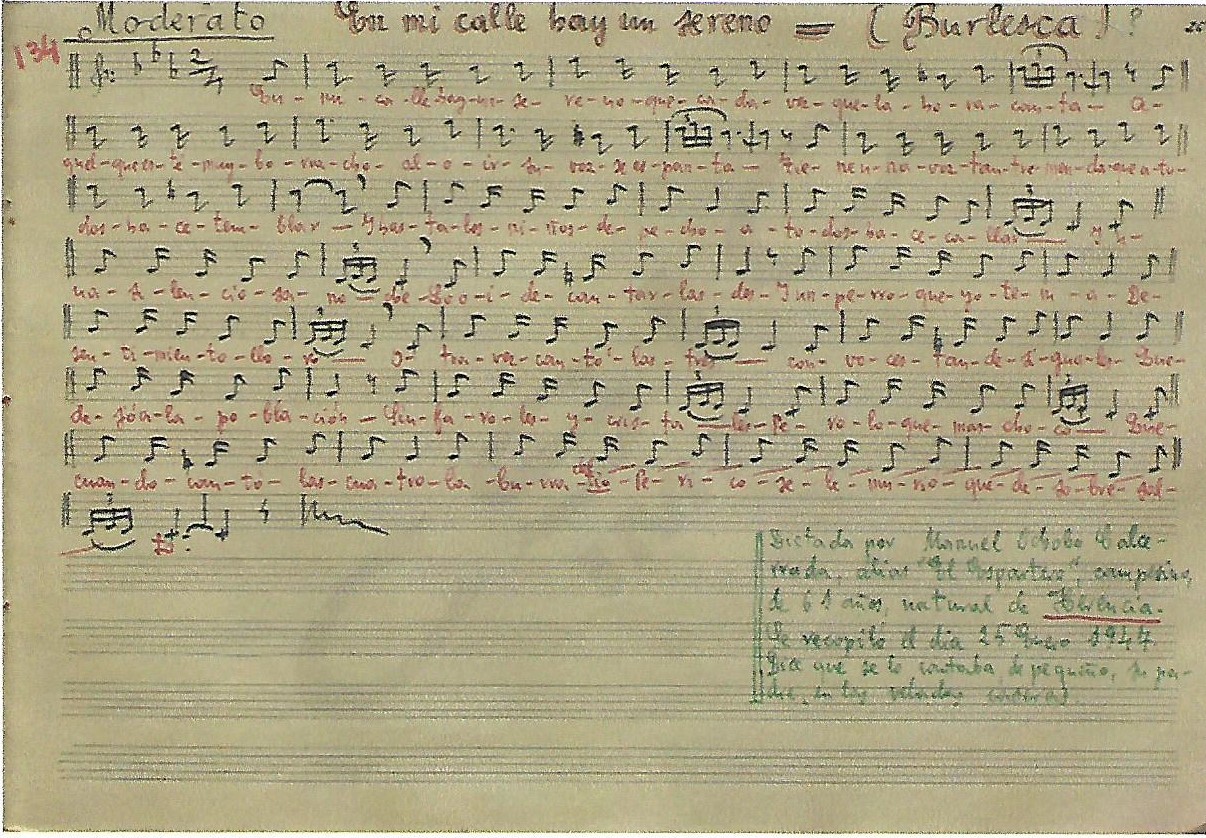 Moderato En mi calle hay un sereno = (Burlesca) ?
134
2/4
En - mi - ca - lle - hay - un - se - re - no - que - ca - da - vez - que - la - ho - ra - can - ta - A -
quel - que es - té - muy - bo - rra - cho - al - o - ir - su - voz - se es - pan - ta - Tie - nen - na - voz - tan - tre - men - da - que a - to -
dos - ha - ce - tem - blar - Y has - ta - los - ni - ños - de - pe - cho - a - to - dos - ha - ce - ca - llar - Y u -
na - si - len - cio - sa - no - che - Lo o - í - de - can - tar - las - dos - Y un - pe - rro - que - yo - te - ní - a - De -
sen - ti - mien - to - llo - ró - O - tra - vez - can - tó - las - tres - con - vo - ces - tan - de - si - gua - les - Que -
de - jó a - la - po - bla - ción - Sin - fa - ro - les - y - cris - ta - les - Pe - ro - lo - que - mas - cho - có - Que -
cuan - do - can - to - las - cua - tro - la - bu - rra - del tío - Pe - ri - co - se - le - mu - rió - que - de - so - bre - sal -
to.
Dictada por Manuel
de 61 años, natural de Herencia.
Se recopiló el dia 25 Enero 1947.
Dice que se lo cantaba, de pequeño, su pa-
dre, en las veladas